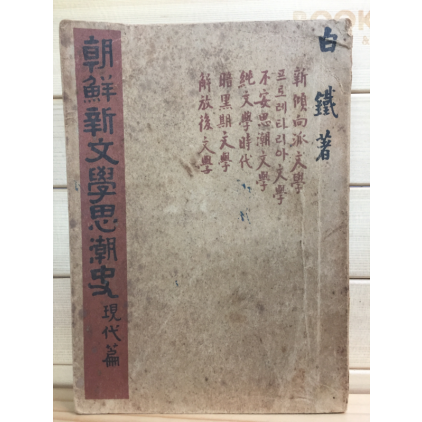 白鐵著
新傾向派文學
프로레타리아文學
不安思潮文學
純文學時代
暗黑期文學
解放後文學
朝鮮新文學思潮史 現代篇
BOOK